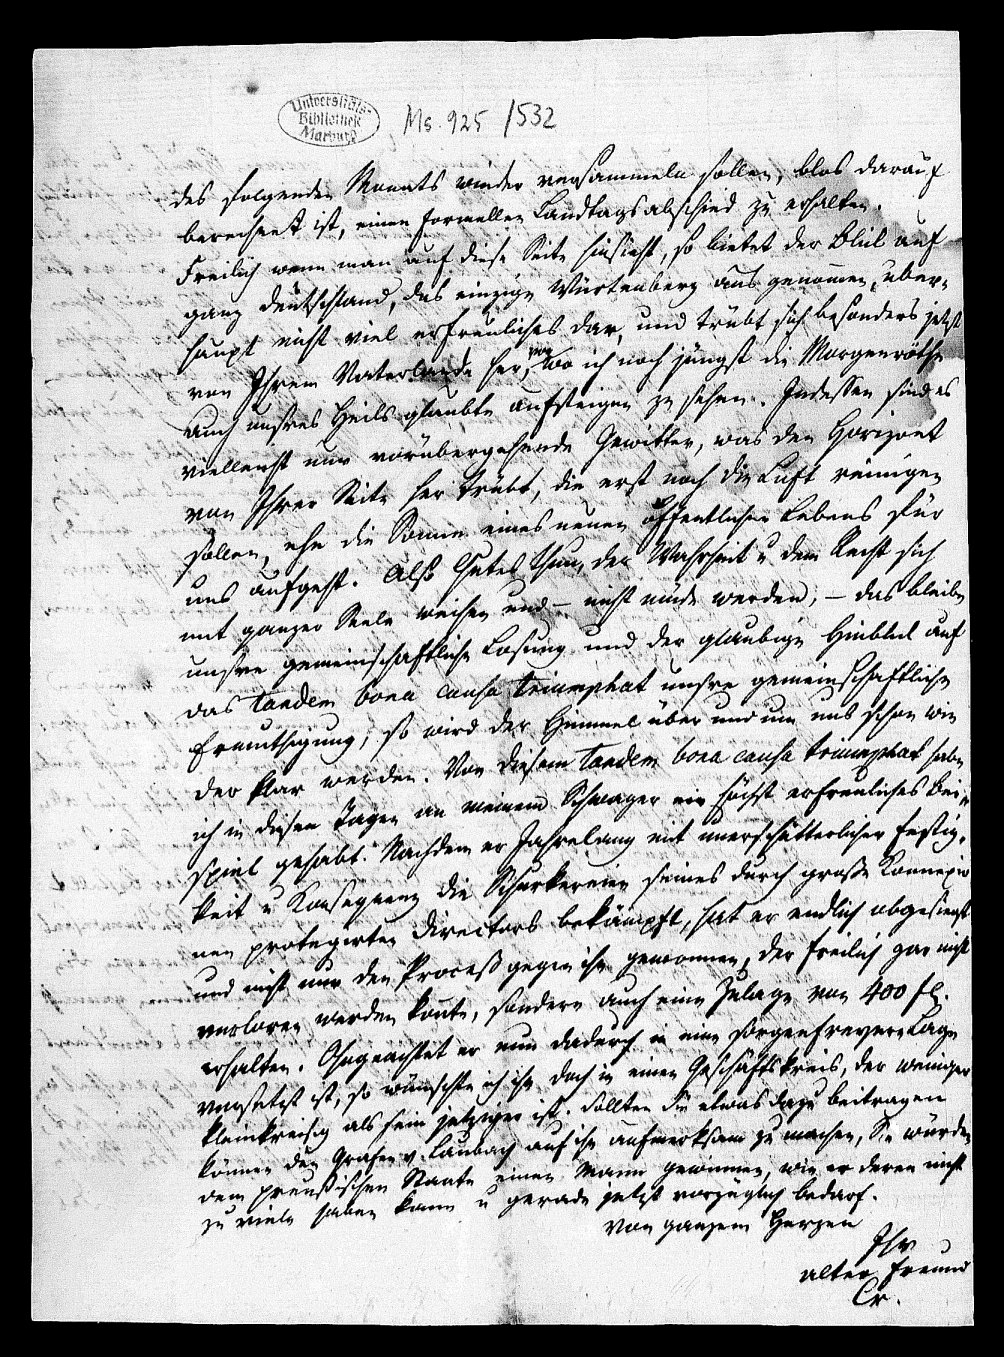 Universitäts-
Bibliothek
Marburg
Ms. 925 /532
des folgenden Monats wieder versammeln sollen, blos darauf
berechnet ist, einen formellen Landtagsabschied zu erhalten.
Freilich wenn man auf diese Seite hinsieht, so bietet der Blik auf
ganz Deutschland, das einzige Würtenberg aus genomen, uber-
haupt nicht viel erfreuliches dar, und trübt sich besonders jetzt
von Ihrem Vaterlande her, von wo ich noch jüngst die Morgenröthe
auch unsres Heils glaubte aufsteigen zu sehen. Indessen sind es
vielleicht nur vorübergehende Gewitter, was den Horizont
von Ihrer Seite her trübt, die erst noch die Luft reinigen
sollen, ehe die Sonne eines neuen öffentlichen Lebens für
uns aufgeht. Also Gutes thun, der Wahrheit u dem Recht sich
mit ganzer Seele weihen und – nicht müde werden; – das bleibe
unsre gemeinschaftliche Losung und der glaubige Hinblik auf
das tandem bona causa triumphat unsre gemeinschaftliche
Ermuthigung, so wird der Himmel über und um uns schon wie
der klar werden. Von diesem tandem bona causa triumphat habe
ich in diesen Tagen an meinem Schwager ein höchst erfreuliches Bei-
spiel gehabt. Nachdem er Jahrelang mit unerschütterlicher Festig-
keit u Konsequenz die Schurkereien seines durch große Konnexio
nen protegirten Directors bekämpft, hat er endlich obgesiegt
und nicht nur den Proceß gegen ihn gewonnen, der freilich gar nicht
verloren werden konte, sondern auch eine Zulage von 400 fl.
erhalten. Ohngeachtet er nun dadurch in eine sorgenfreyere Lage
versetzt ist, so wünschte ich ihn doch in einen Geschäftskreis, der weniger
kleinkreisig als sein jetziger ist. Sollten Sie etwas dazu beitragen
können den Grafen v. Laubach auf ihn aufmerksam zu machen, Sie würden
dem preußischen Staate einen Mann gewinnen, wie er deren nicht
zu viele haben kann u gerade jetzt vorzüglich bedarf.
Von ganzem Herzen
Ihr
alter Freund
Cr.